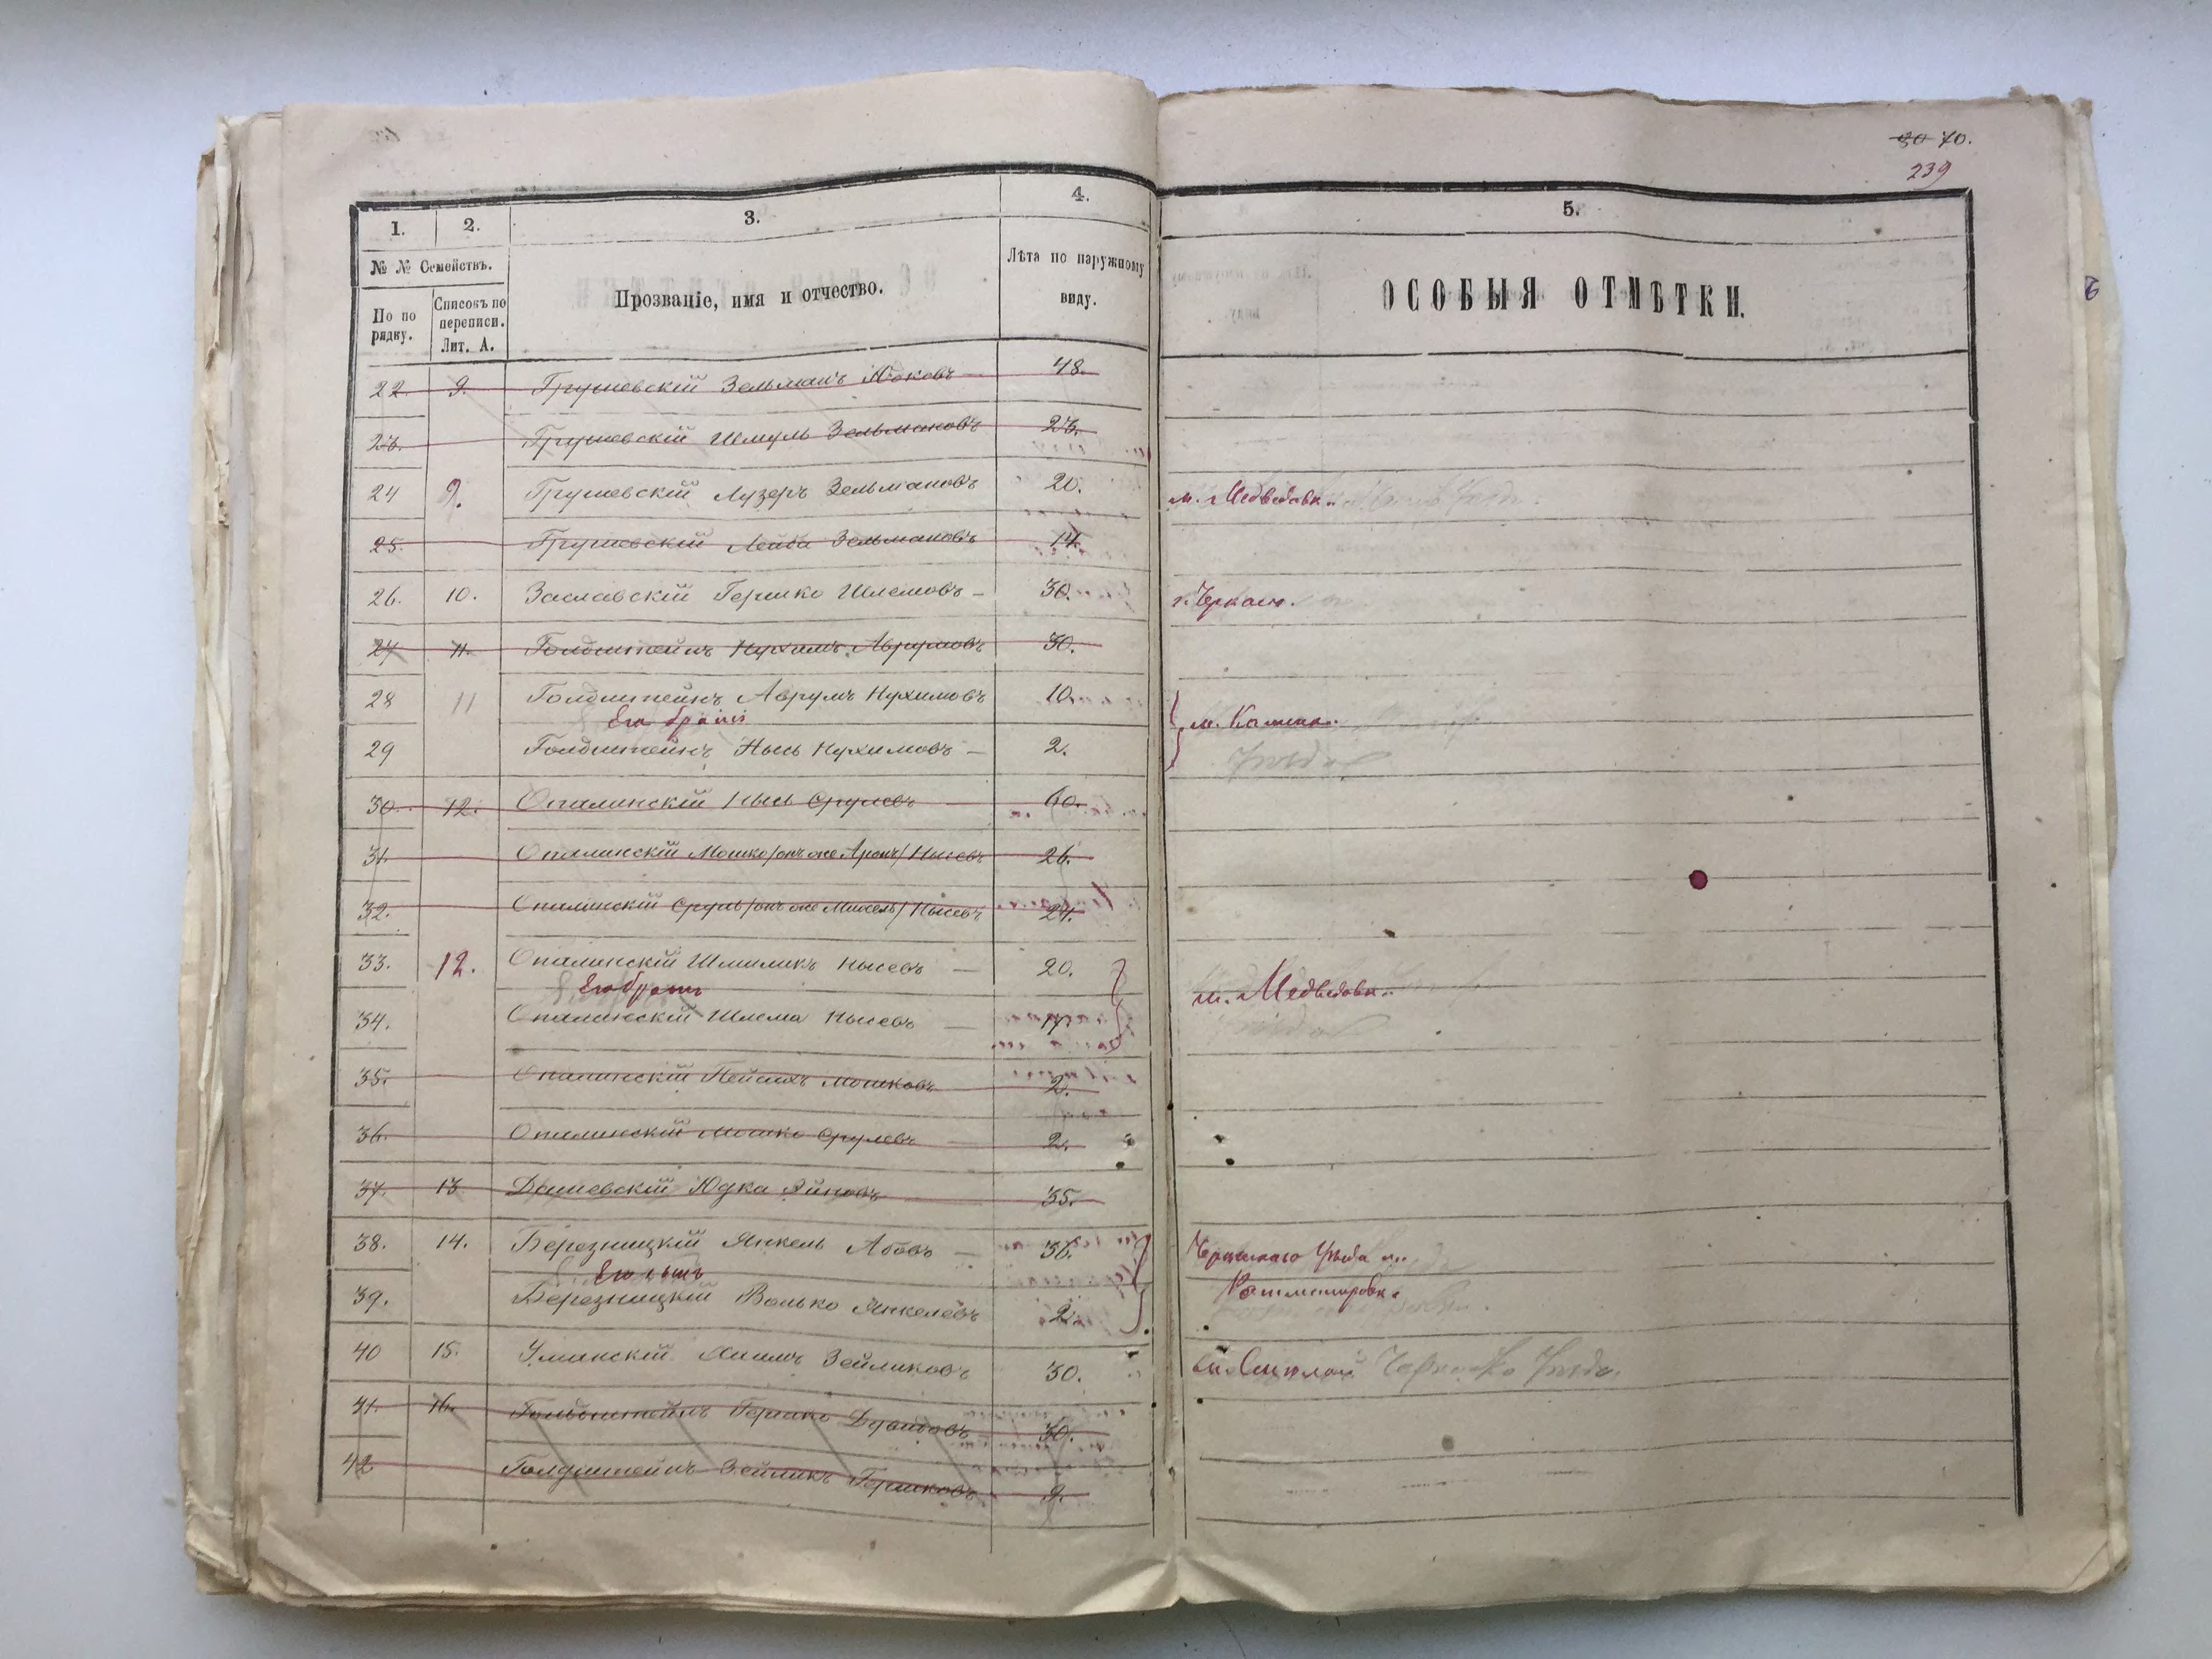 30 70.
239
1. 2. 3. 4. 5.
№ № Семействъ.
По по рядку.
Списокъ по переписи. Лит. А.
Прозваніе, имя и отчество.
Лѣта по наружному виду.
ОСОБЫЯ ОТМѢТКИ.
22. 9. Грушевскій Зельманъ Юдковъ — 48.
23. Грушевскій Шмуль Зельмановъ 23.
24 9. Грушевскій Лузеръ Зельмановъ 20. м. Медведовк..
25. Грушевскій Лейба Зельмановъ 14.
26. 10. Заславскій Гершко Шлемовъ — 30. г. Черкасы.
27 11. Голдштейнъ Нухимъ Аврумовъ 30.
28 11 Голдштейнъ Аврумъ Нухимовъ 10.
Его братъ
м. Каменк..
29 Голдштейнъ Нысь Нухимовъ — 2.
Уѣзда
30. 12. Опалинскій Нысь Срулевъ — 60.
31. Опалинскій Мошко /онъ же Аронъ/ Нысевъ 26.
32. Опалинскій Сруль /онъ же Михель/ Нысевъ 24.
33. 12. Опалинскій Шмиликъ Нысевъ — 20.
Его братъ
м. Медведовк..
34. Опалинскій Шлема Нысевъ — 17.
35. Опалинскій Пейсахъ Мошковъ 2.
36. Опалинскій Мошко Срулевъ — 2.
37. 13 Дашевскій Юдка 35.
38. 14. Березницкій Янкель Абовъ — 36. Уѣзда м.
Его сынъ
Ротмистровк.
39. Березницкій Волько Янкелевъ 2.
40 15. Уманскій Хаимъ Зейликовъ 30. м. Смѣлой Уѣзда.
41. 16. Гольдштейнъ Гершко Дувидовъ 30.
42 Голдштейнъ Зейликъ Гершковъ 9.